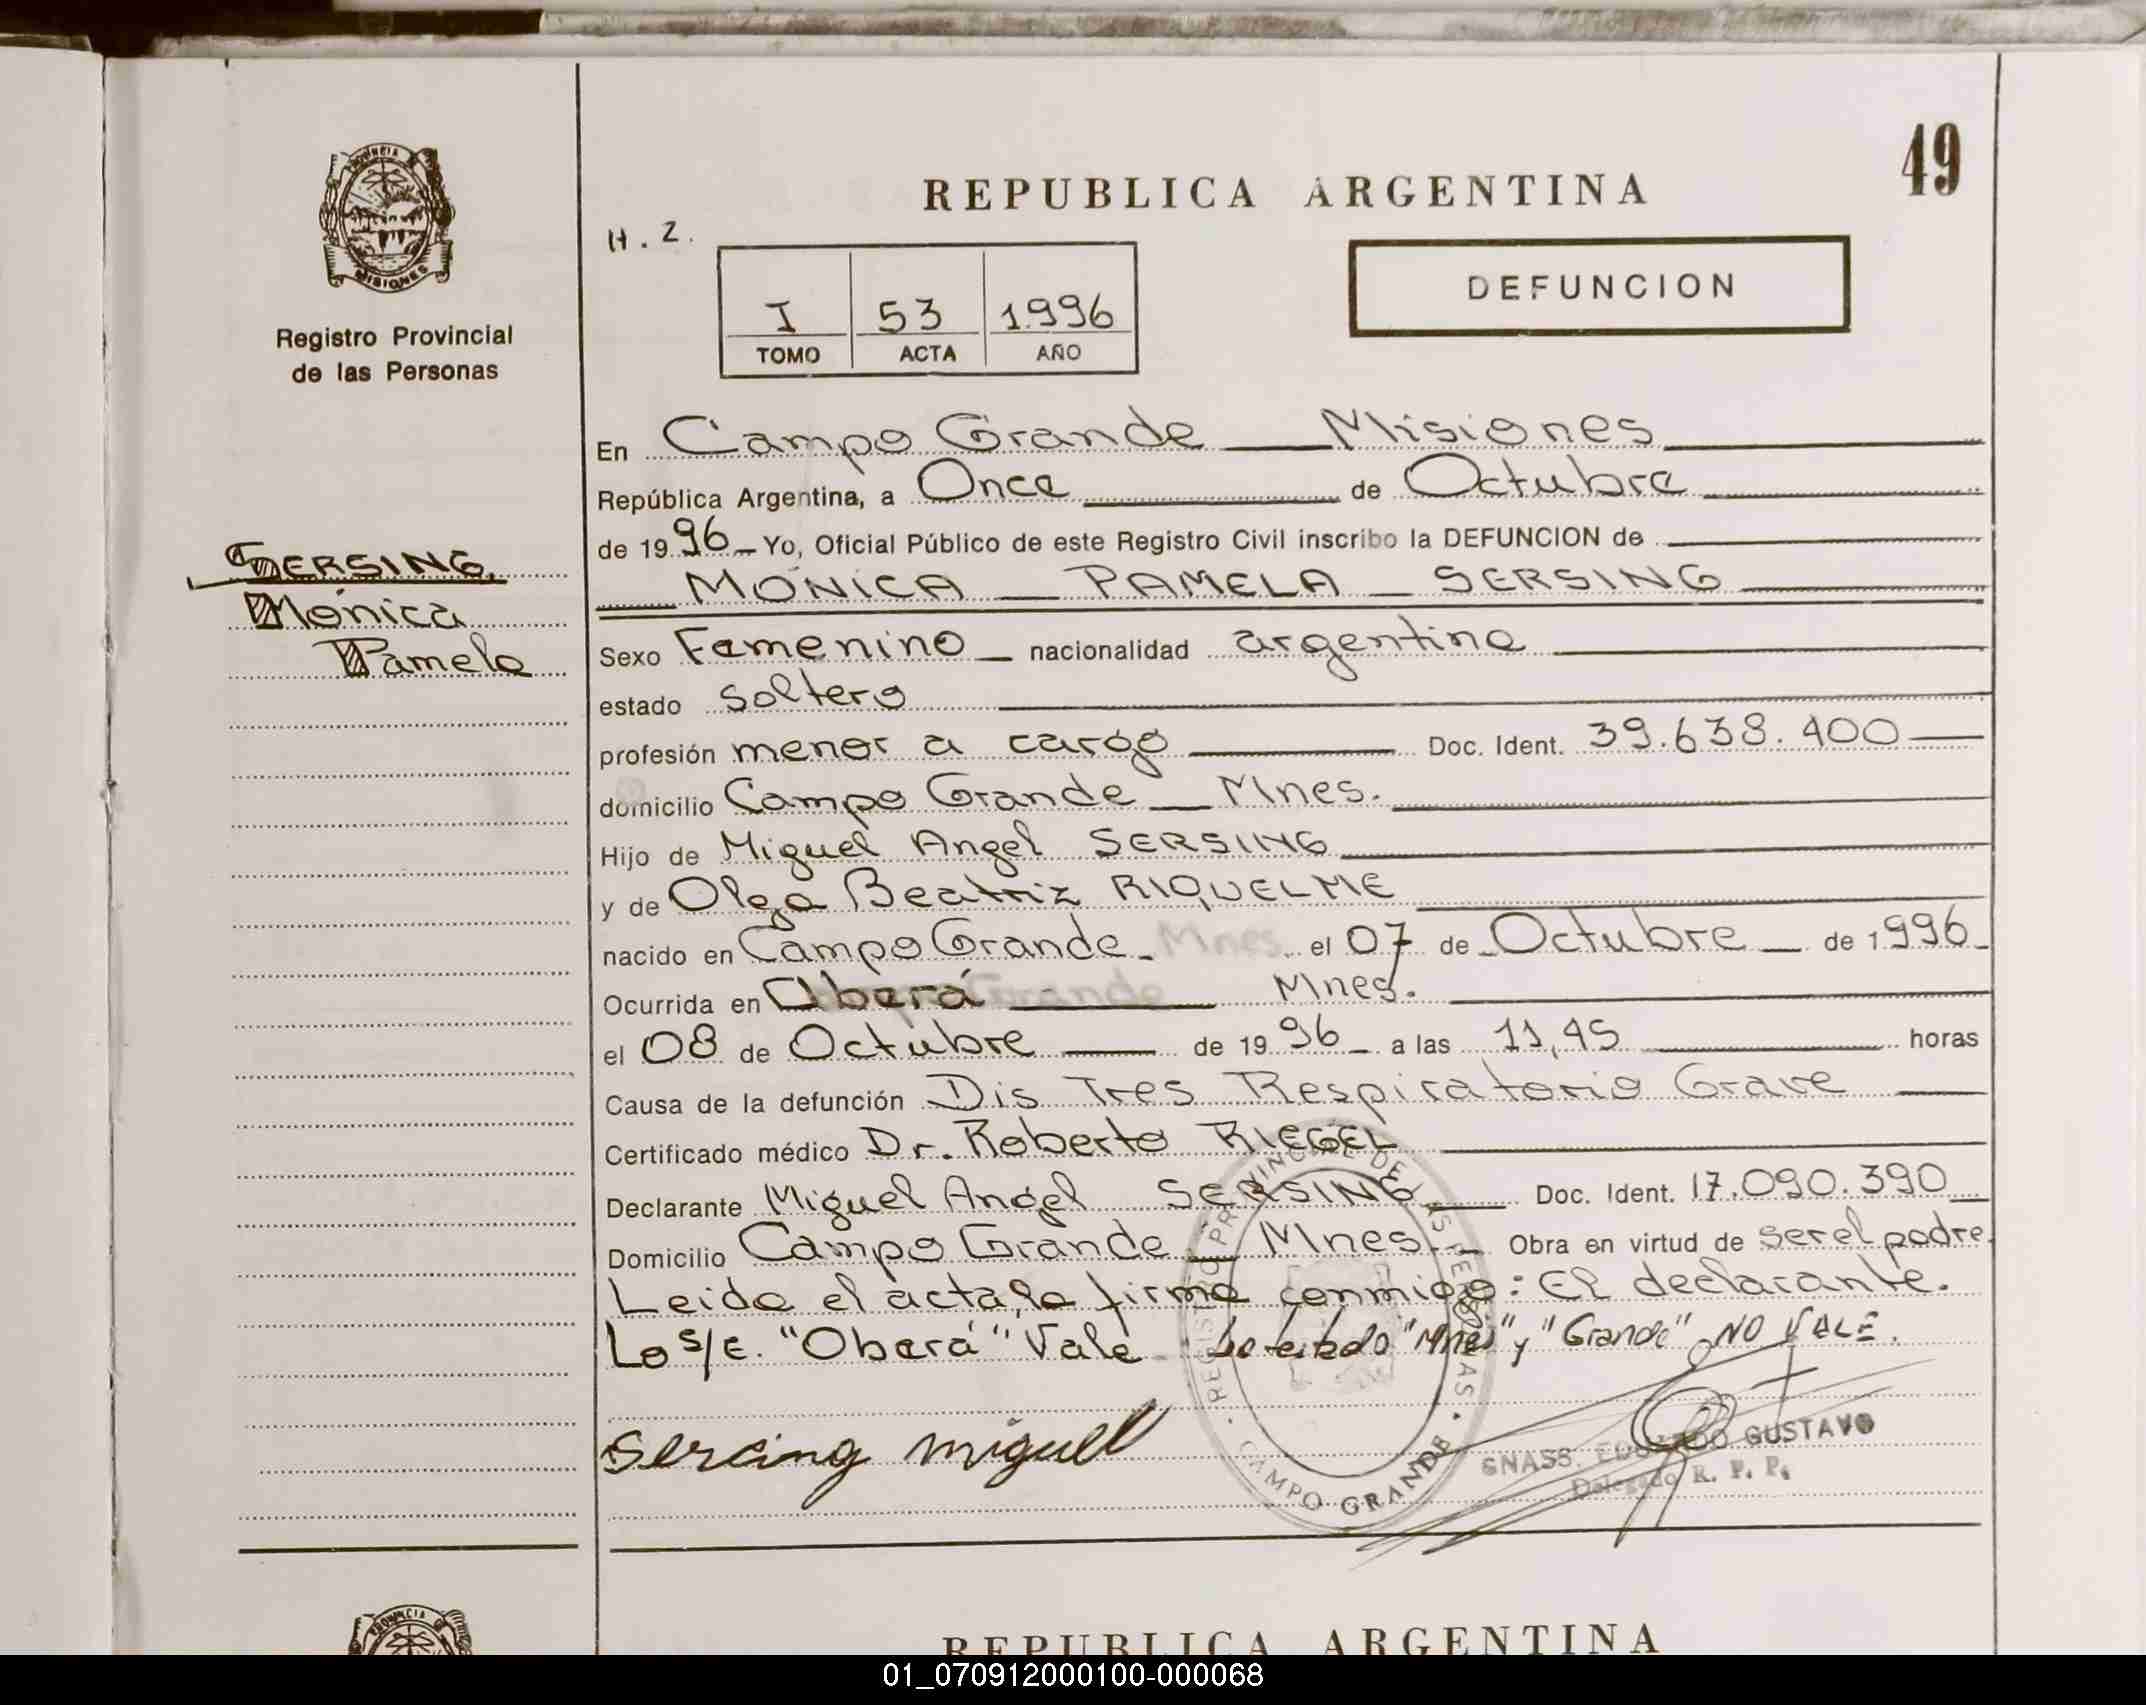 49
REPUBLICA ARGENTINA
H. 2.
DEFUNCION
I 53 1996
TOMO ACTA AÑO
PROVINCIA
MISIONES
Registro Provincial
de las Personas
SERSING,
Mónica
Pamela
En Campo Grande Misiones
República Argentina, a Once de Octubre
de 1996 Yo, Oficial Público de este Registro Civil inscribo la DEFUNCION de
MÓNICA PAMELA SERSING
Sexo Femenino nacionalidad argentina
estado soltero
profesión menor a cargo Doc. Ident. 39.638.400
domicilio Campo Grande Mnes.
Hijo de Miguel Angel SERSING
y de Olga Beatriz RIQUELME
nacido en Campo Grande - Mnes el 07 de Octubre de 1996
Ocurrida en Oberá Grande Mnes.
el 08 de Octubre de 1996 a las 11,45 horas
Causa de la defunción Dis Tres Respiratorio Grave
Certificado médico Dr. Roberto RIEGEL
Declarante Miguel Angel SERSING Doc. Ident. 17.090.390
Domicilio Campo Grande Mnes. Obra en virtud de ser el padre.
Leida el acta, la firma conmigo: El declarante.
Lo s/E. "Oberá" Vale Lo testado "Mnes" y "Grande" NO VALE.
sercing miguel
REGISTRO PROVINCIAL DE LAS PERSONAS
CAMPO GRANDE
GNASS, EDUARDO GUSTAVO
Delegado R. P. P.
PROVINCIA
REPUBLICA ARGENTINA
01_070912000100-000068